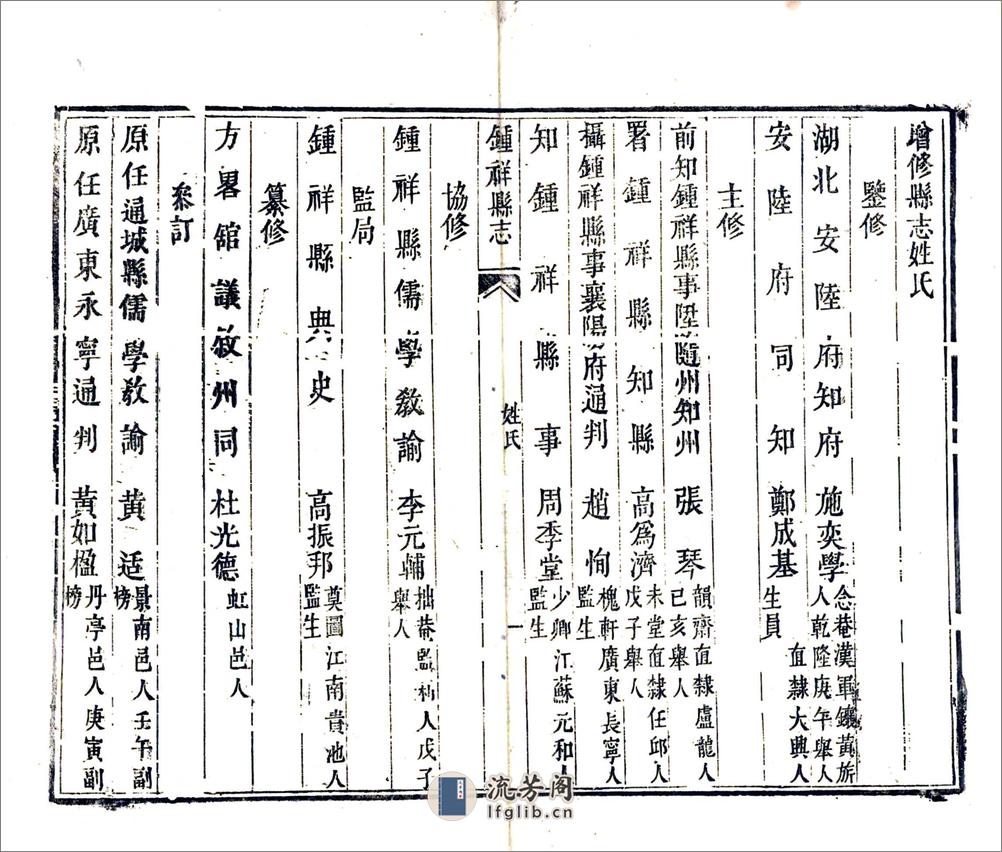 增修縣志姓氏
鑒修
湖北安陸府知府 施奕學 念菴漢軍鑲黃旂人乾隆庚午舉人
安陸府同知 鄭成基 直隸大興人生員
主修
前知鍾祥縣事陞隨州知州 張琴 韻齋直隸盧龍人己亥舉人
署鍾祥縣知縣 高為濟 未堂直隸任邱人戊子舉人
攝鍾祥縣事襄陽府通判 趙恂 槐軒廣東長寧人監生
知鍾祥縣事 周季堂 少卿江蘇元和人監生
鍾祥縣志 姓氏 一
協修
鍾祥縣儒學教諭 李元輔 拙菴監利人戊子舉人
監局
鍾祥縣典史 高振邦 奠圖江南貴池人監生
纂修
方畧舘議敘州同 杜光德 虹山邑人
叅訂
原任通城縣儒學教諭 黃适 景南邑人壬午副榜
原任廣東永寧通判 黃如楹 丹亭邑人庚寅副榜
流芳阁
lfglib.cn